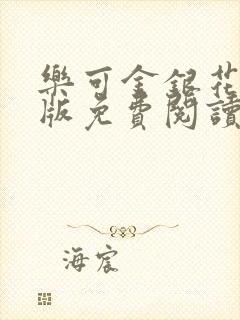 樂可金銀花
版免費閱讀
海宸